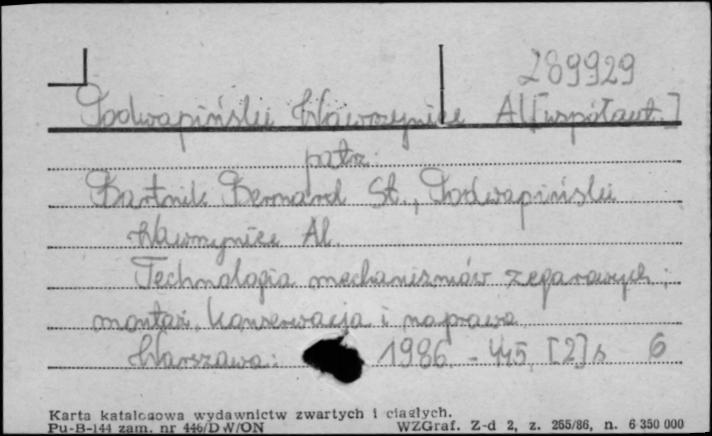 289929
Podwapiński Wawrzyniec Al [współaut.]
patrz:
Bartnik Bernard St., Podwapiński
Wawrzyniec Al.
Technologia mechanizmów zegarowych:
montaż, konserwacja i naprawa.
Warszawa: 1986. - 445, [2] s 6
Karta katalogowa wydawnictw zwartych i ciągłych.
Pu-B-144 zam. nr 446/DW/ON WZGraf. Z-d 2, z. 265/86, n. 6 350 000